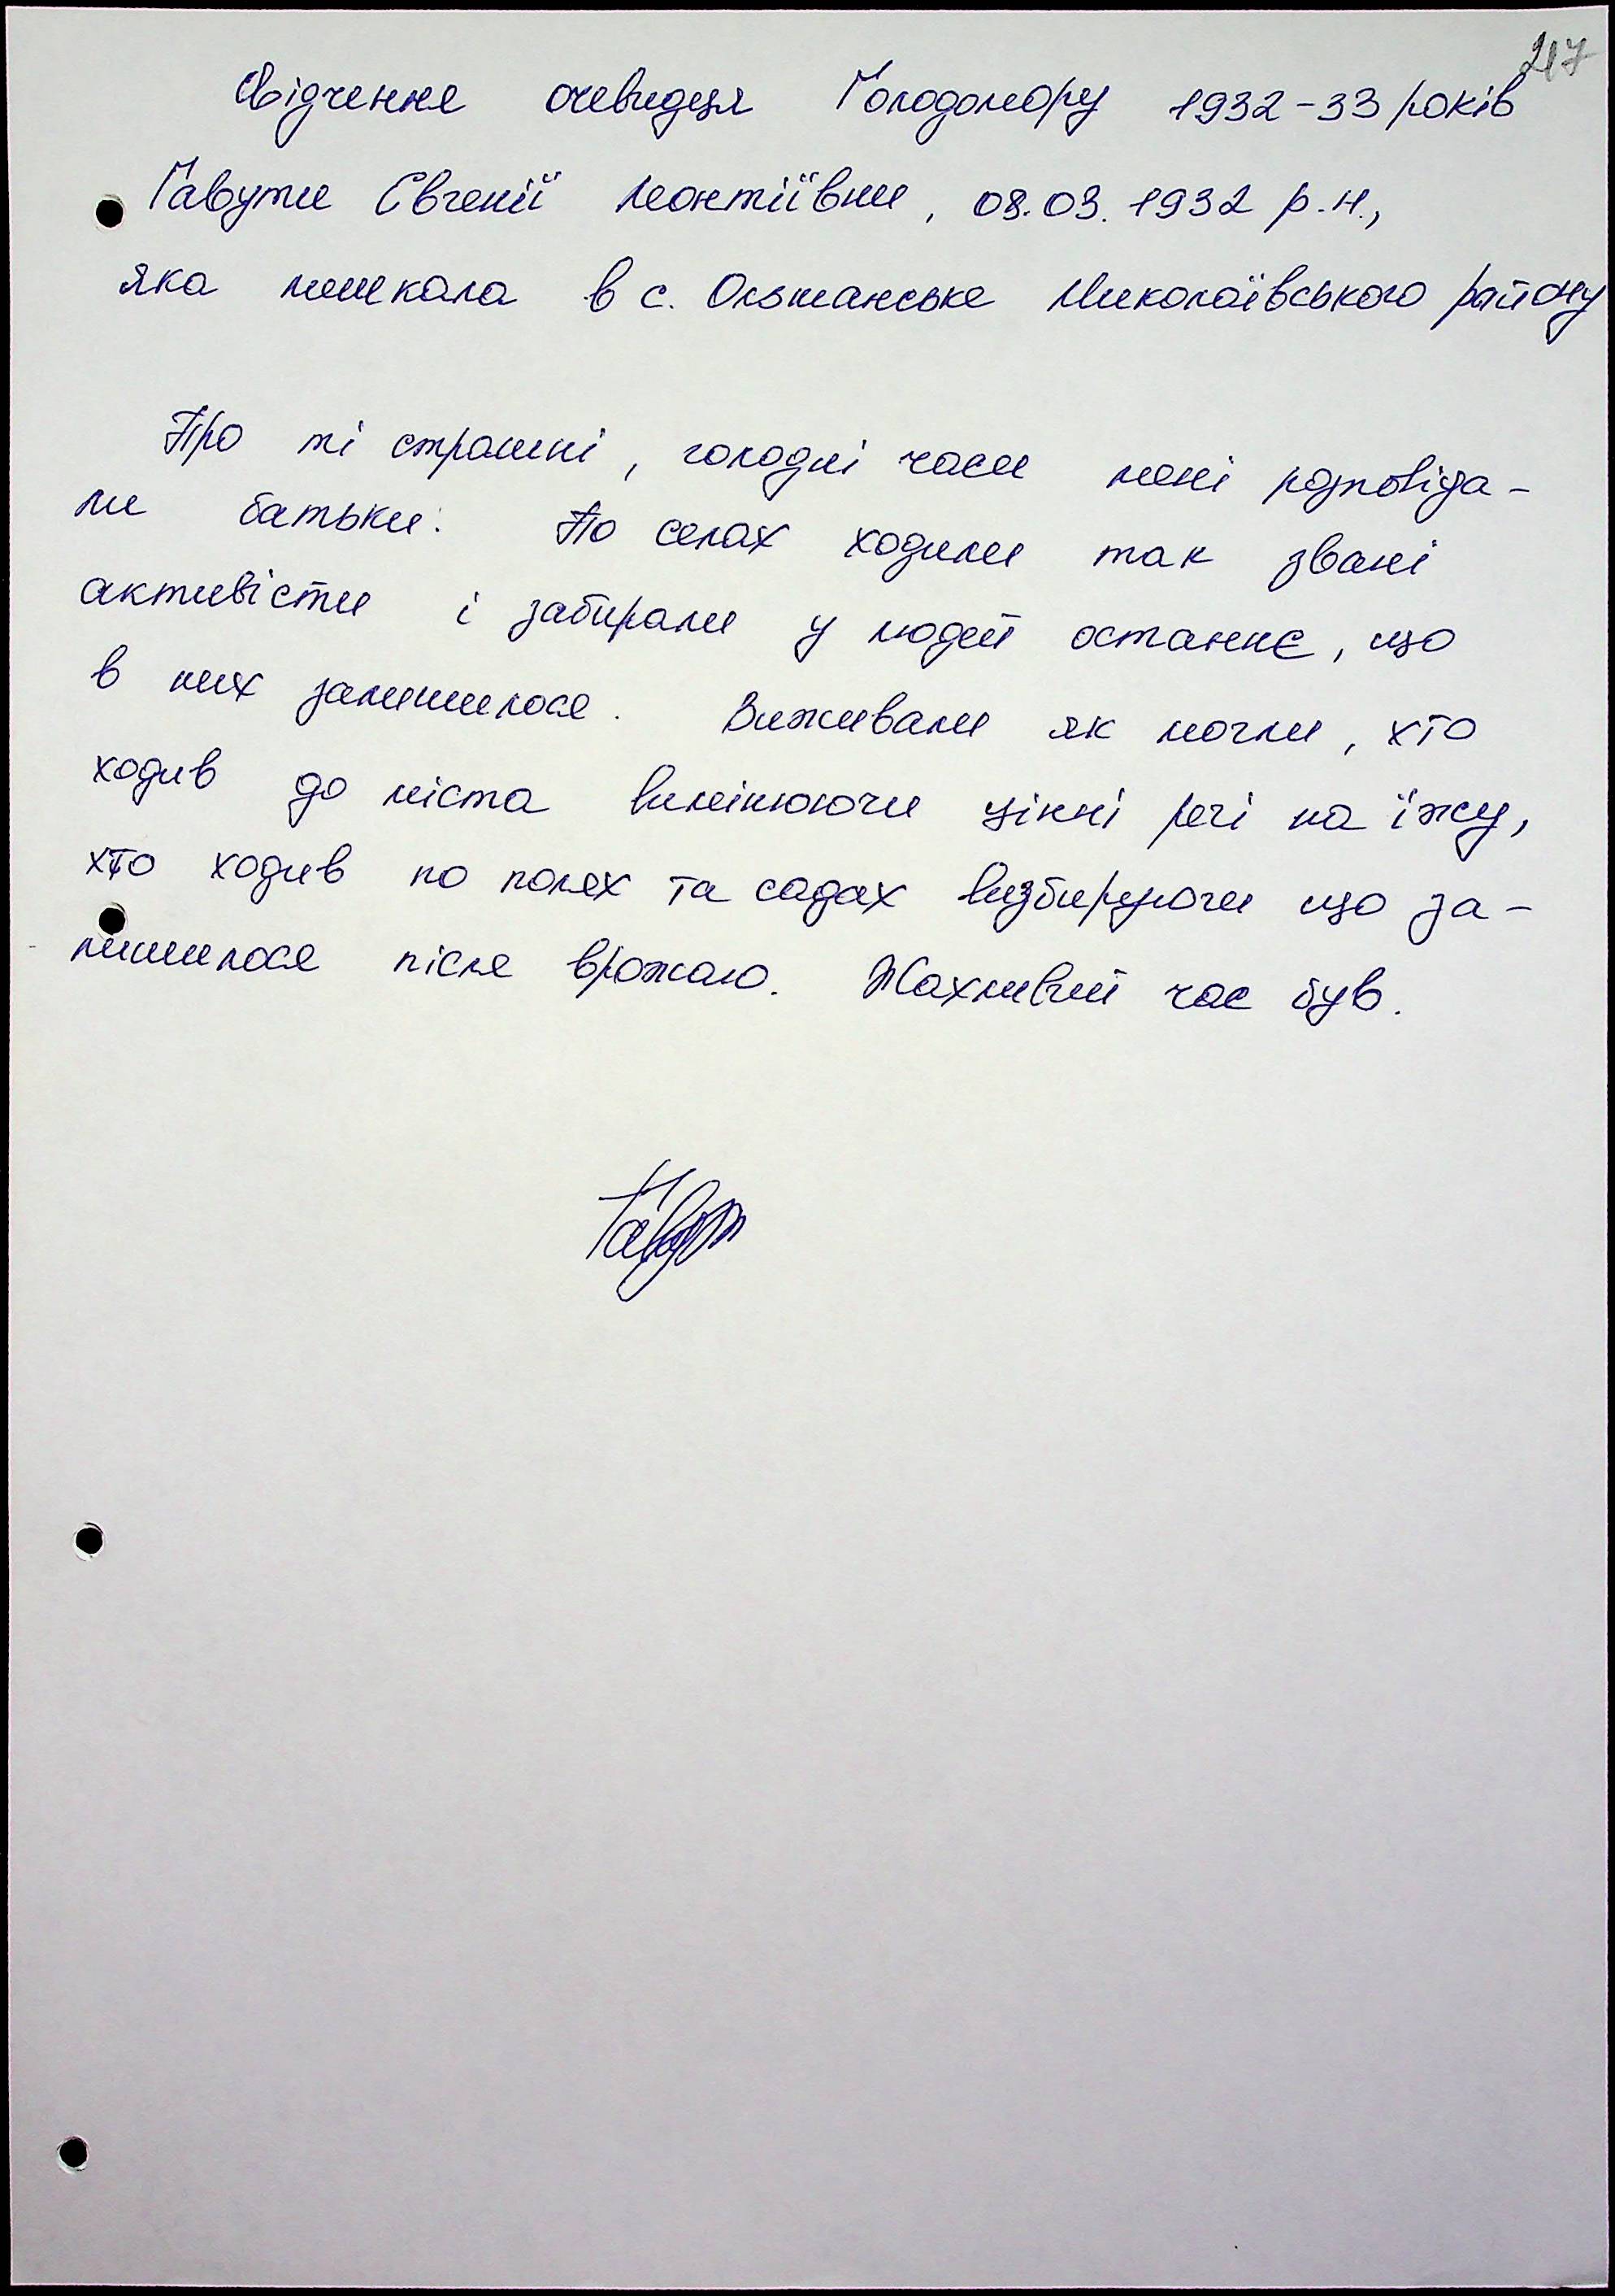 217
Свідчення очевидця Голодомору 1932-33 років
Гавути Євгенії Леонтіївни, 08.03.1932 р.н.,
яка мешкала в с. Ольшанське Миколаївського району
Про ті страшні, голодні часи мені розповіда-
ли батьки. По селах ходили так звані
активісти і забирали у людей останнє, що
в них залишилося. Виживали як могли, хто
ходив до міста вимінюючи цінні речі на їжу,
хто ходив по полях та садах визбируючи що за-
лишилося після врожаю. Жахливий час був.